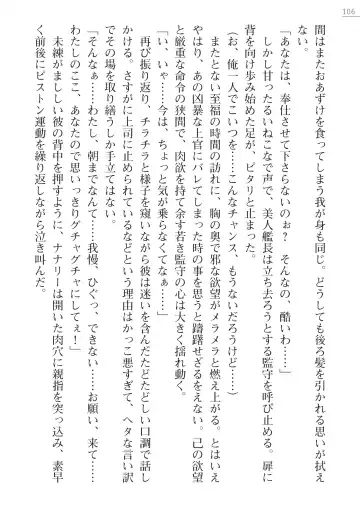 106
間はまたおあずけを食ってしまう我が身も同じ。どうしても後ろ髪を引かれる思いが拭え
ない。
「あなたは、奉仕させて下さらないのぉ？　そんなの、酷いわ……」
しかし甘ったるいねこなで声で、美人艦長は立ち去ろうとする監守を呼び止める。扉に
背を向け歩み始めた足が、ピタリと止まった。
（お、俺一人でこいつを……こんなチャンス、もうないだろうけど……）
またとない至福の時間の訪れに、胸の奥で邪な欲望がメラメラと燃え上がる。とはいえ
やはり、あの凶暴な上官にバレてしまった時の事を思うと躊躇せざるをえない。己の欲望
と厳重な命令の狭間で、肉欲を持て余す若き監守の心は大きく揺れ動く。
「い、いや……今は、ちょっと気が乗らなくてなぁ……」
再び振り返り、チラチラと様子を窺いながら彼は迷いを含んだたどたどしい口調で話し
かける。さすがに上司に止められているなどという理由はかっこ悪すぎて、ヘタな言い訳
でその場を取り繕うしか手立てはない。
「そんなぁ……わたし、朝までなんて……我慢、ひぐっ、できない……お願い、来て……
わたしのここ、あなたので思いっきりグチャグチャにしてぇ……」
未練がましい彼の背中を押すように、ナナリーは開いた肉穴に親指を突っ込み、素早
く前後にピストン運動を繰り返しながら泣き叫んだ。